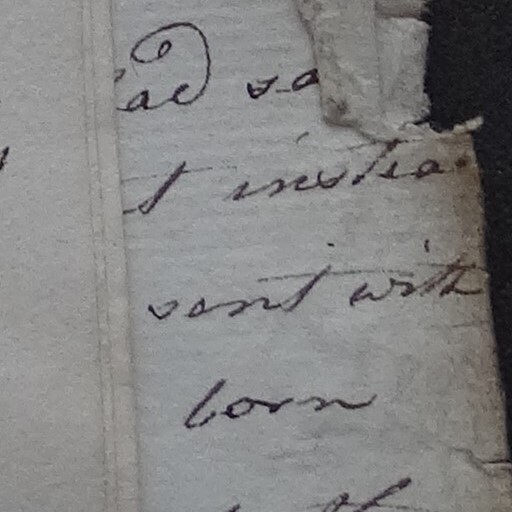 ad sa
t instea
sent with
born